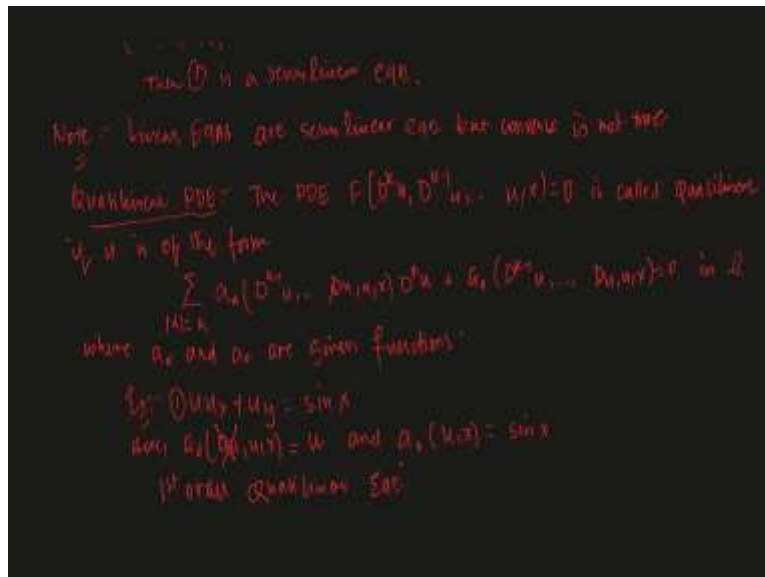 Then ① is a semilinear eqn.
Note:- Linear Eqns are semilinear eqn but converse is not true
Quasilinear PDE:- The PDE F(D^k u, D^{k-1} u, .. u, x)=0 is called quasilinear
if it is of the form
∑_{|α|=k} a_α(D^{k-1} u, .. Du, u, x) D^α u + a_0 (D^{k-1} u, ... Du, u, x)=0 in Ω
where a_α and a_0 are given functions.
Eg:- ① u u_x + u_y = sin x
here a_α(u, x) = u and a_0 (u, x) = sin x
1st order Quasilinear Eqn